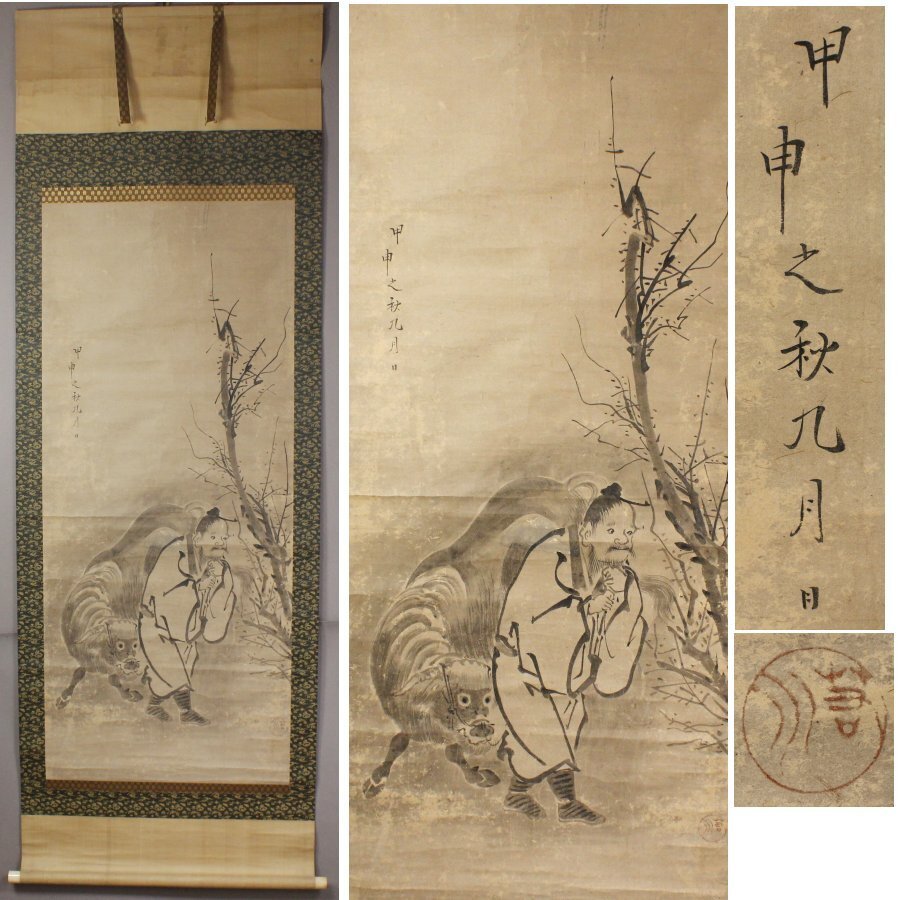 甲申之秋九月日
甲申之秋九月日
甲申之秋九月日